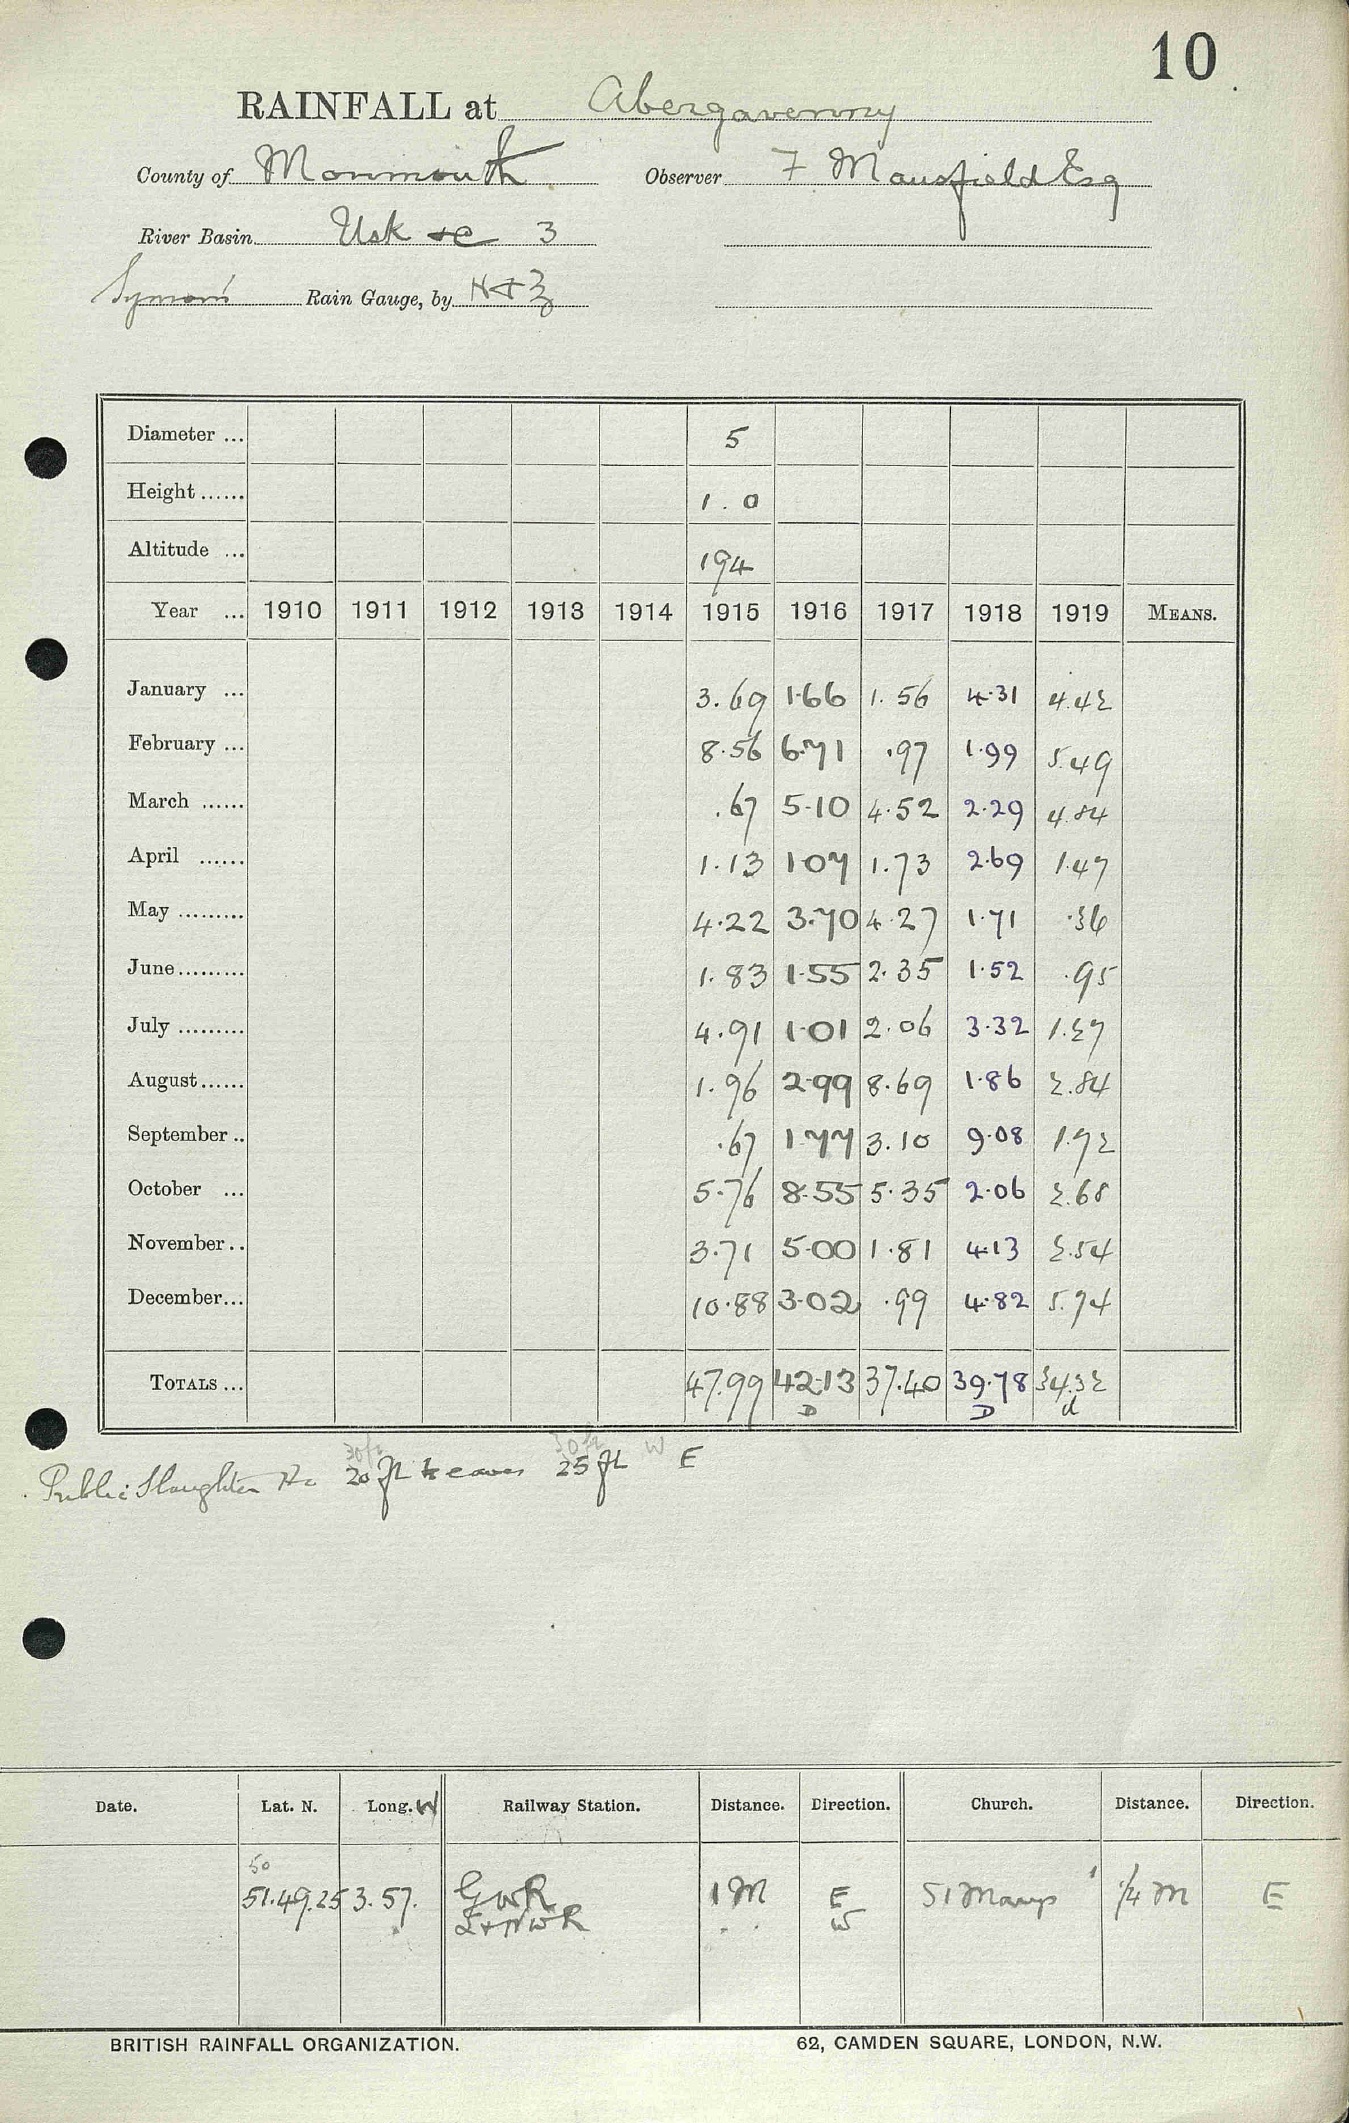 10
RAINFALL at Abergavenny
County of Monmouth Observer F Mansfield Esq
River Basin Usk &c 3
Symons Rain Gauge, by N & Z
Diameter ... 5
Height ...... 1.0
Altitude ... 194
Year ... 1910 1911 1912 1913 1914 1915 1916 1917 1918 1919 MEANS.
January ... 3.69 1.66 1.56 4.31 4.42
February ... 8.56 6.71 .97 1.99 5.49
March ...... .67 5.10 4.52 2.29 4.84
April ...... 1.13 1.07 1.73 2.69 1.47
May ......... 4.22 3.70 4.27 1.71 .36
June ......... 1.83 1.55 2.35 1.52 .95
July ......... 4.91 1.01 2.06 3.32 1.27
August ...... 1.96 2.99 8.69 1.86 2.84
September .. .67 1.77 3.10 9.08 1.72
October ... 5.76 8.55 5.35 2.06 2.68
November .. 3.71 5.00 1.81 4.13 2.54
December ... 10.88 3.02 .99 4.82 5.74
TOTALS ... 47.99 42.13 37.40 39.78 34.32
D D d
30ft 30ft W
Public Slaughter Ho 20 ft to eaves 25 ft E
Date. Lat. N. Long. W Railway Station. Distance. Direction. Church. Distance. Direction.
50
51.49.25 3.57. GWR 1 M E St Marys 1/4 M E
L & NWR " " W
BRITISH RAINFALL ORGANIZATION. 62, CAMDEN SQUARE, LONDON, N.W.